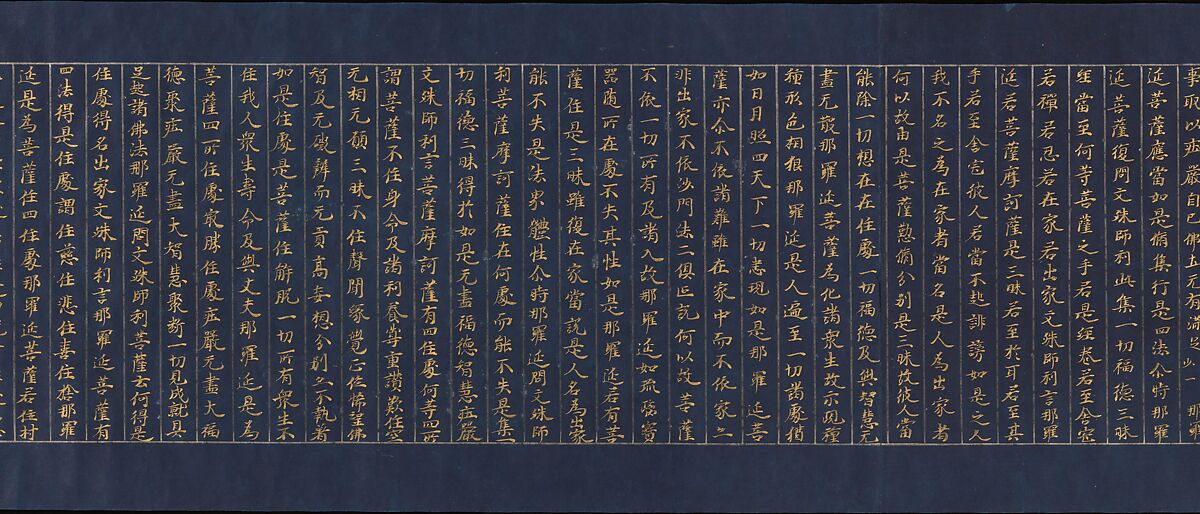 延菩薩應當如是脩集行是四法尒時那羅
延菩薩復問文殊師利此集一切福德三昧
經當至何等菩薩之手若是經卷若至舍宅
若禪若忍若在家若出家文殊師利言那羅
延若菩薩摩訶薩是三昧若至於耳若至其
手若至舍宅彼人若當不起誹謗如是之人
我不名之為在家者當名是人為出家者
何以故由是菩薩懃脩分別是三昧故彼人當
能除一切想在在住處一切福德及與智慧无
盡无散那羅延菩薩為化諸衆生故示現種
種形色相猊那羅延是人遍至一切諸處猶
如日月照四天下一切悉現如是那羅延菩
薩亦尒不依諸難雖在家中而不依家亦
非出家不依沙門法二俱叵說何以故菩薩
不依一切所有及諸入故那羅延如琉璃寳
器随所在處不失其性如是那羅延若有菩
薩住是三昧雖復在家當說是人名為出家
能不失是法界體性尒時那羅延問文殊師
利菩薩摩訶薩住在何處而能不失是集一
切福德三昧得於如是无盡福德智慧莊嚴
文殊師利言菩薩摩訶薩有四住處何等四所
謂菩薩不住身命及諸利養尊重讃歎住空
无相无願三昧不住聲聞緣覺正位悕望佛
智及无礙辯而无貢高妄想分别亦不執著
如是住處是菩薩住解脱一切所有衆生不
住我人衆生壽命及與丈夫那羅延是為
菩薩四所住處最勝住處莊嚴无盡大福
德聚莊嚴无盡大智慧聚斷一切見成就具
足起諸佛法那羅延問文殊師利菩薩云何得是
住處得名出家文殊師利言那羅延菩薩有
四法得是住處謂住慈住悲住喜住捨那羅
延是為菩薩住四住處那羅延菩薩若住村